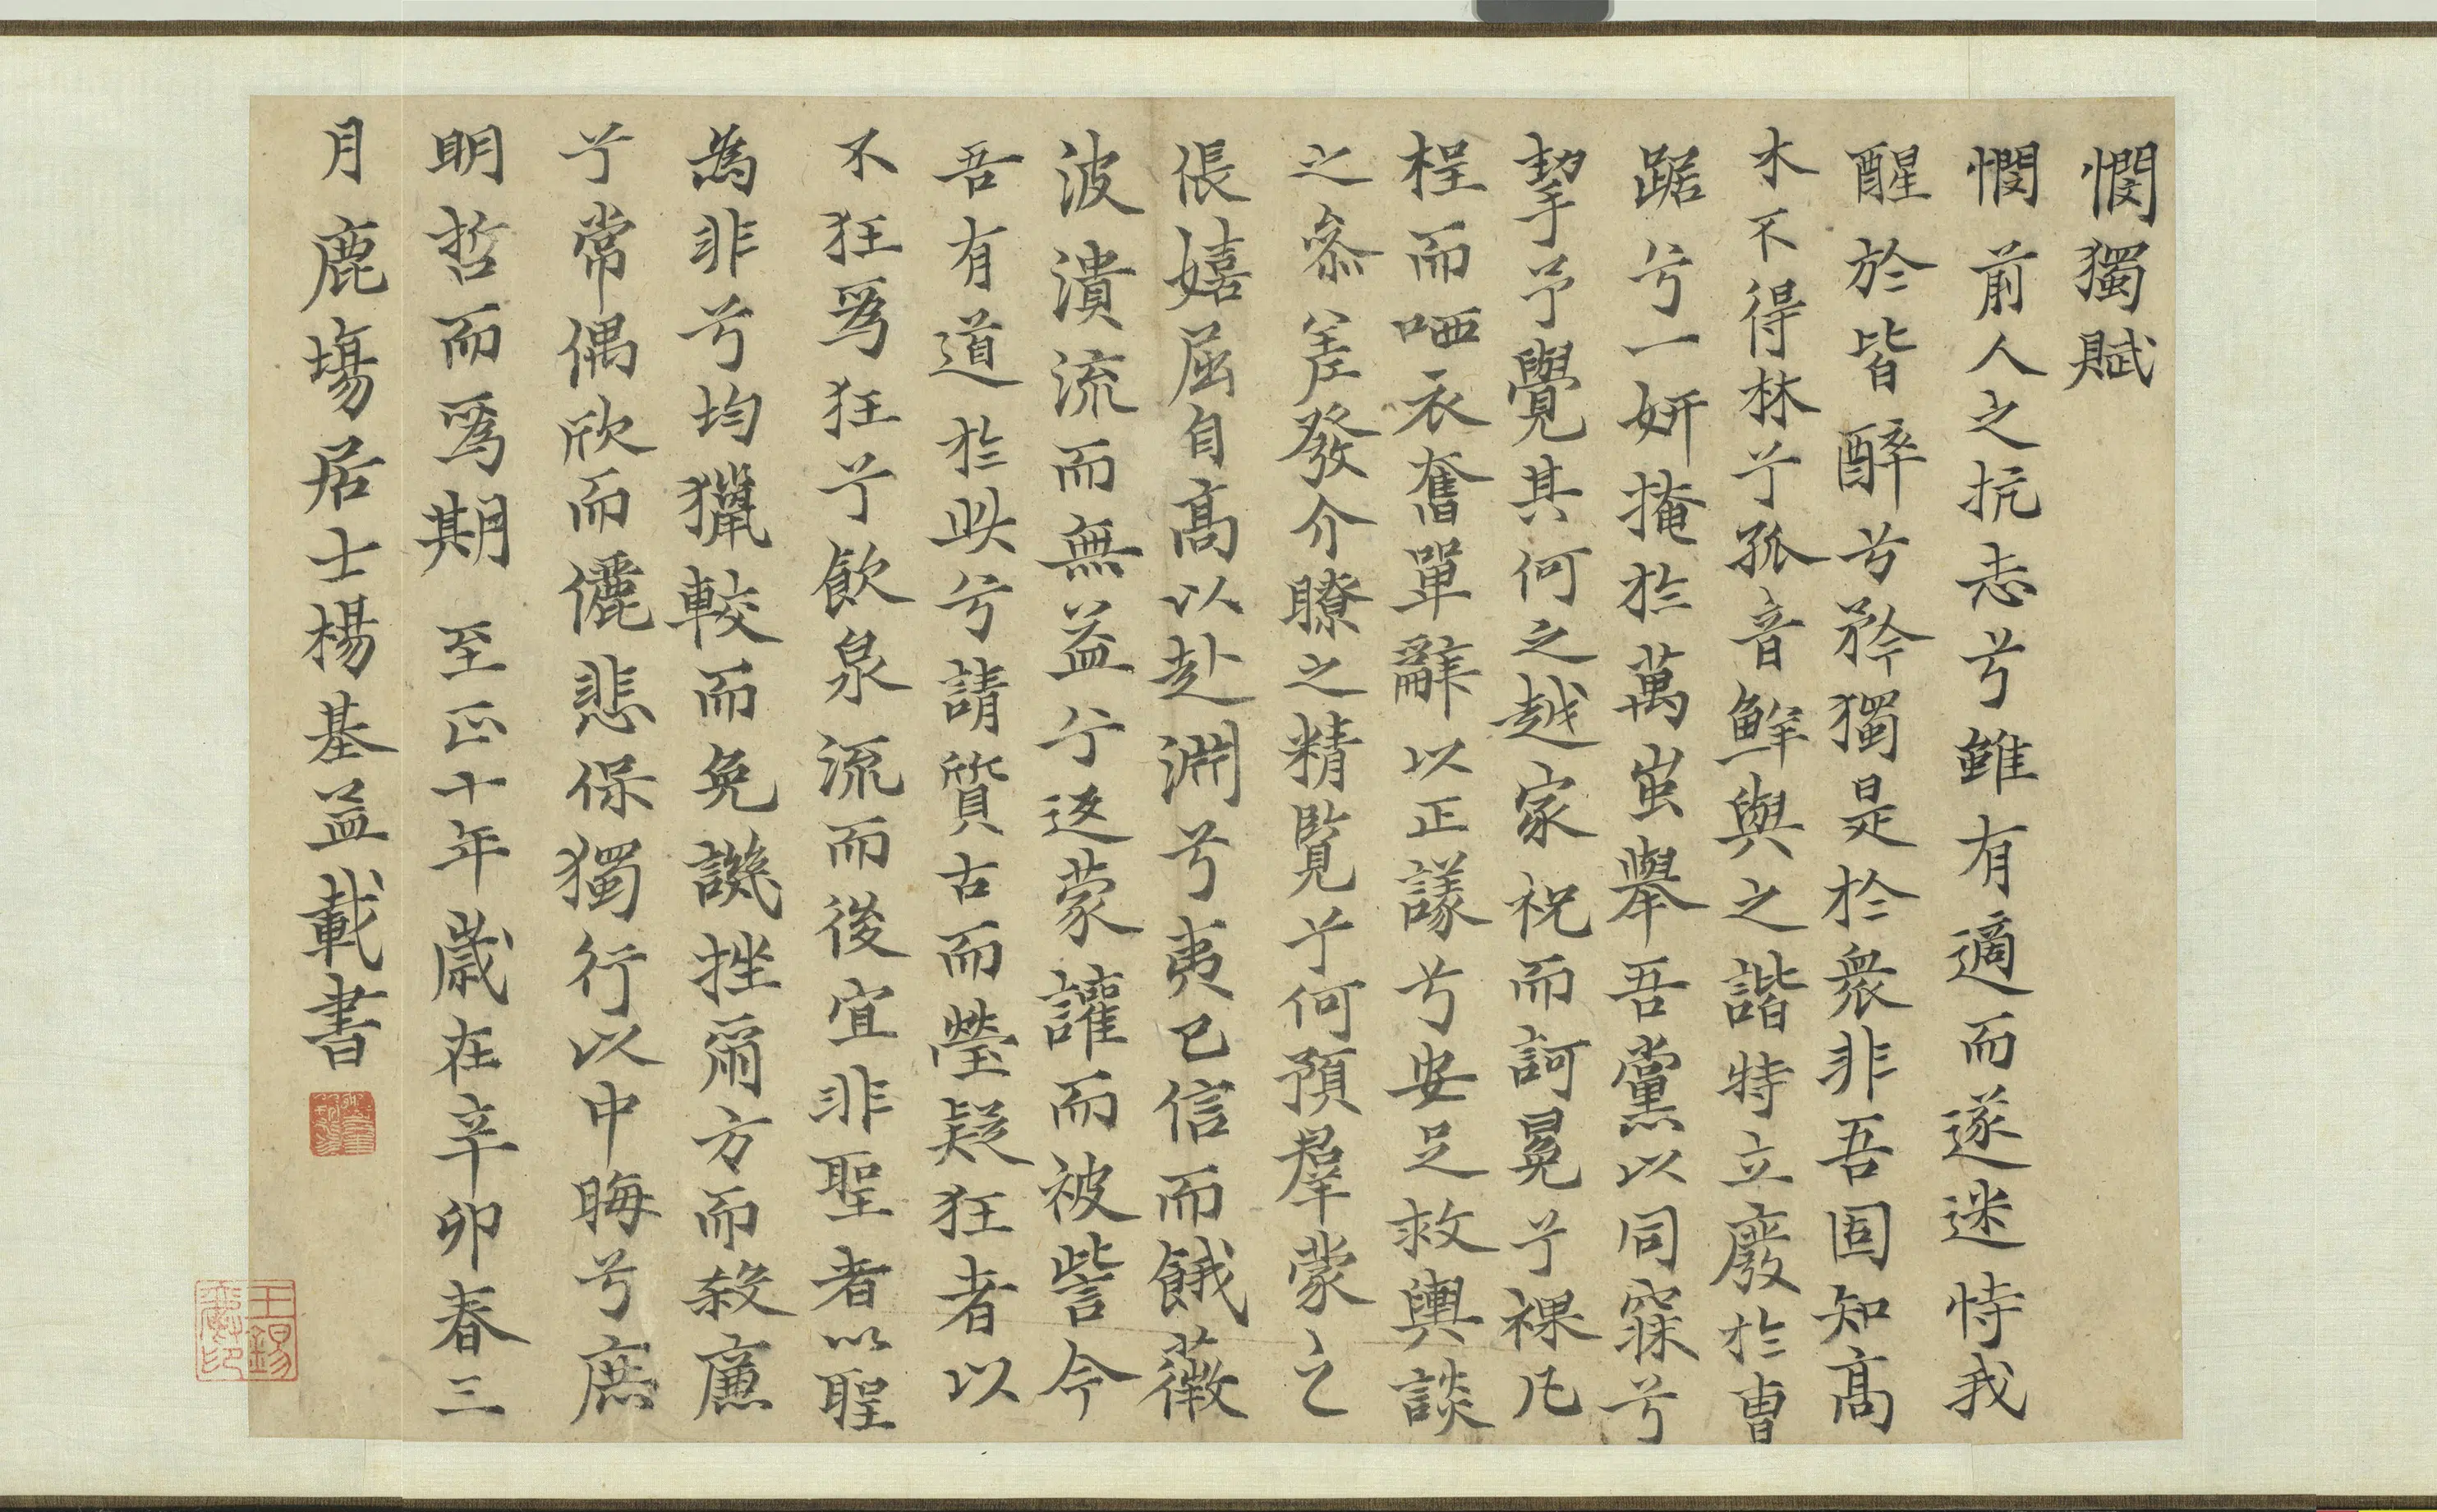 憫獨賦
憫前人之抗志兮雖有適而遂迷恃我
醒於皆醉兮矜獨是於衆非吾固知高
木不得林兮孤音鮮與之諧特立廢於曹
踞兮一妍掩於萬蚩舉吾黨以同寐兮
挈予覺其何之越家祝而訶冕兮裸凡
裎而哂衣奮單辭以正議兮安足救輿談
之參差發介瞭之精覽兮何預羣蒙之
倀嬉屈自高以赴淵兮夷已信而餓薇
波潰流而無益兮返蒙讙而被訾今
吾有道於此兮請質古而瑩疑狂者以
不狂爲狂兮飲泉流而後宜非聖者以聖
為非兮均獵較而免譏挫爾方而殺廉
兮常偶欣而儷悲保獨行以中晦兮庶
明哲而爲期 至正十年歲在辛卯春三
月鹿場居士楊基益載書
王錫
印